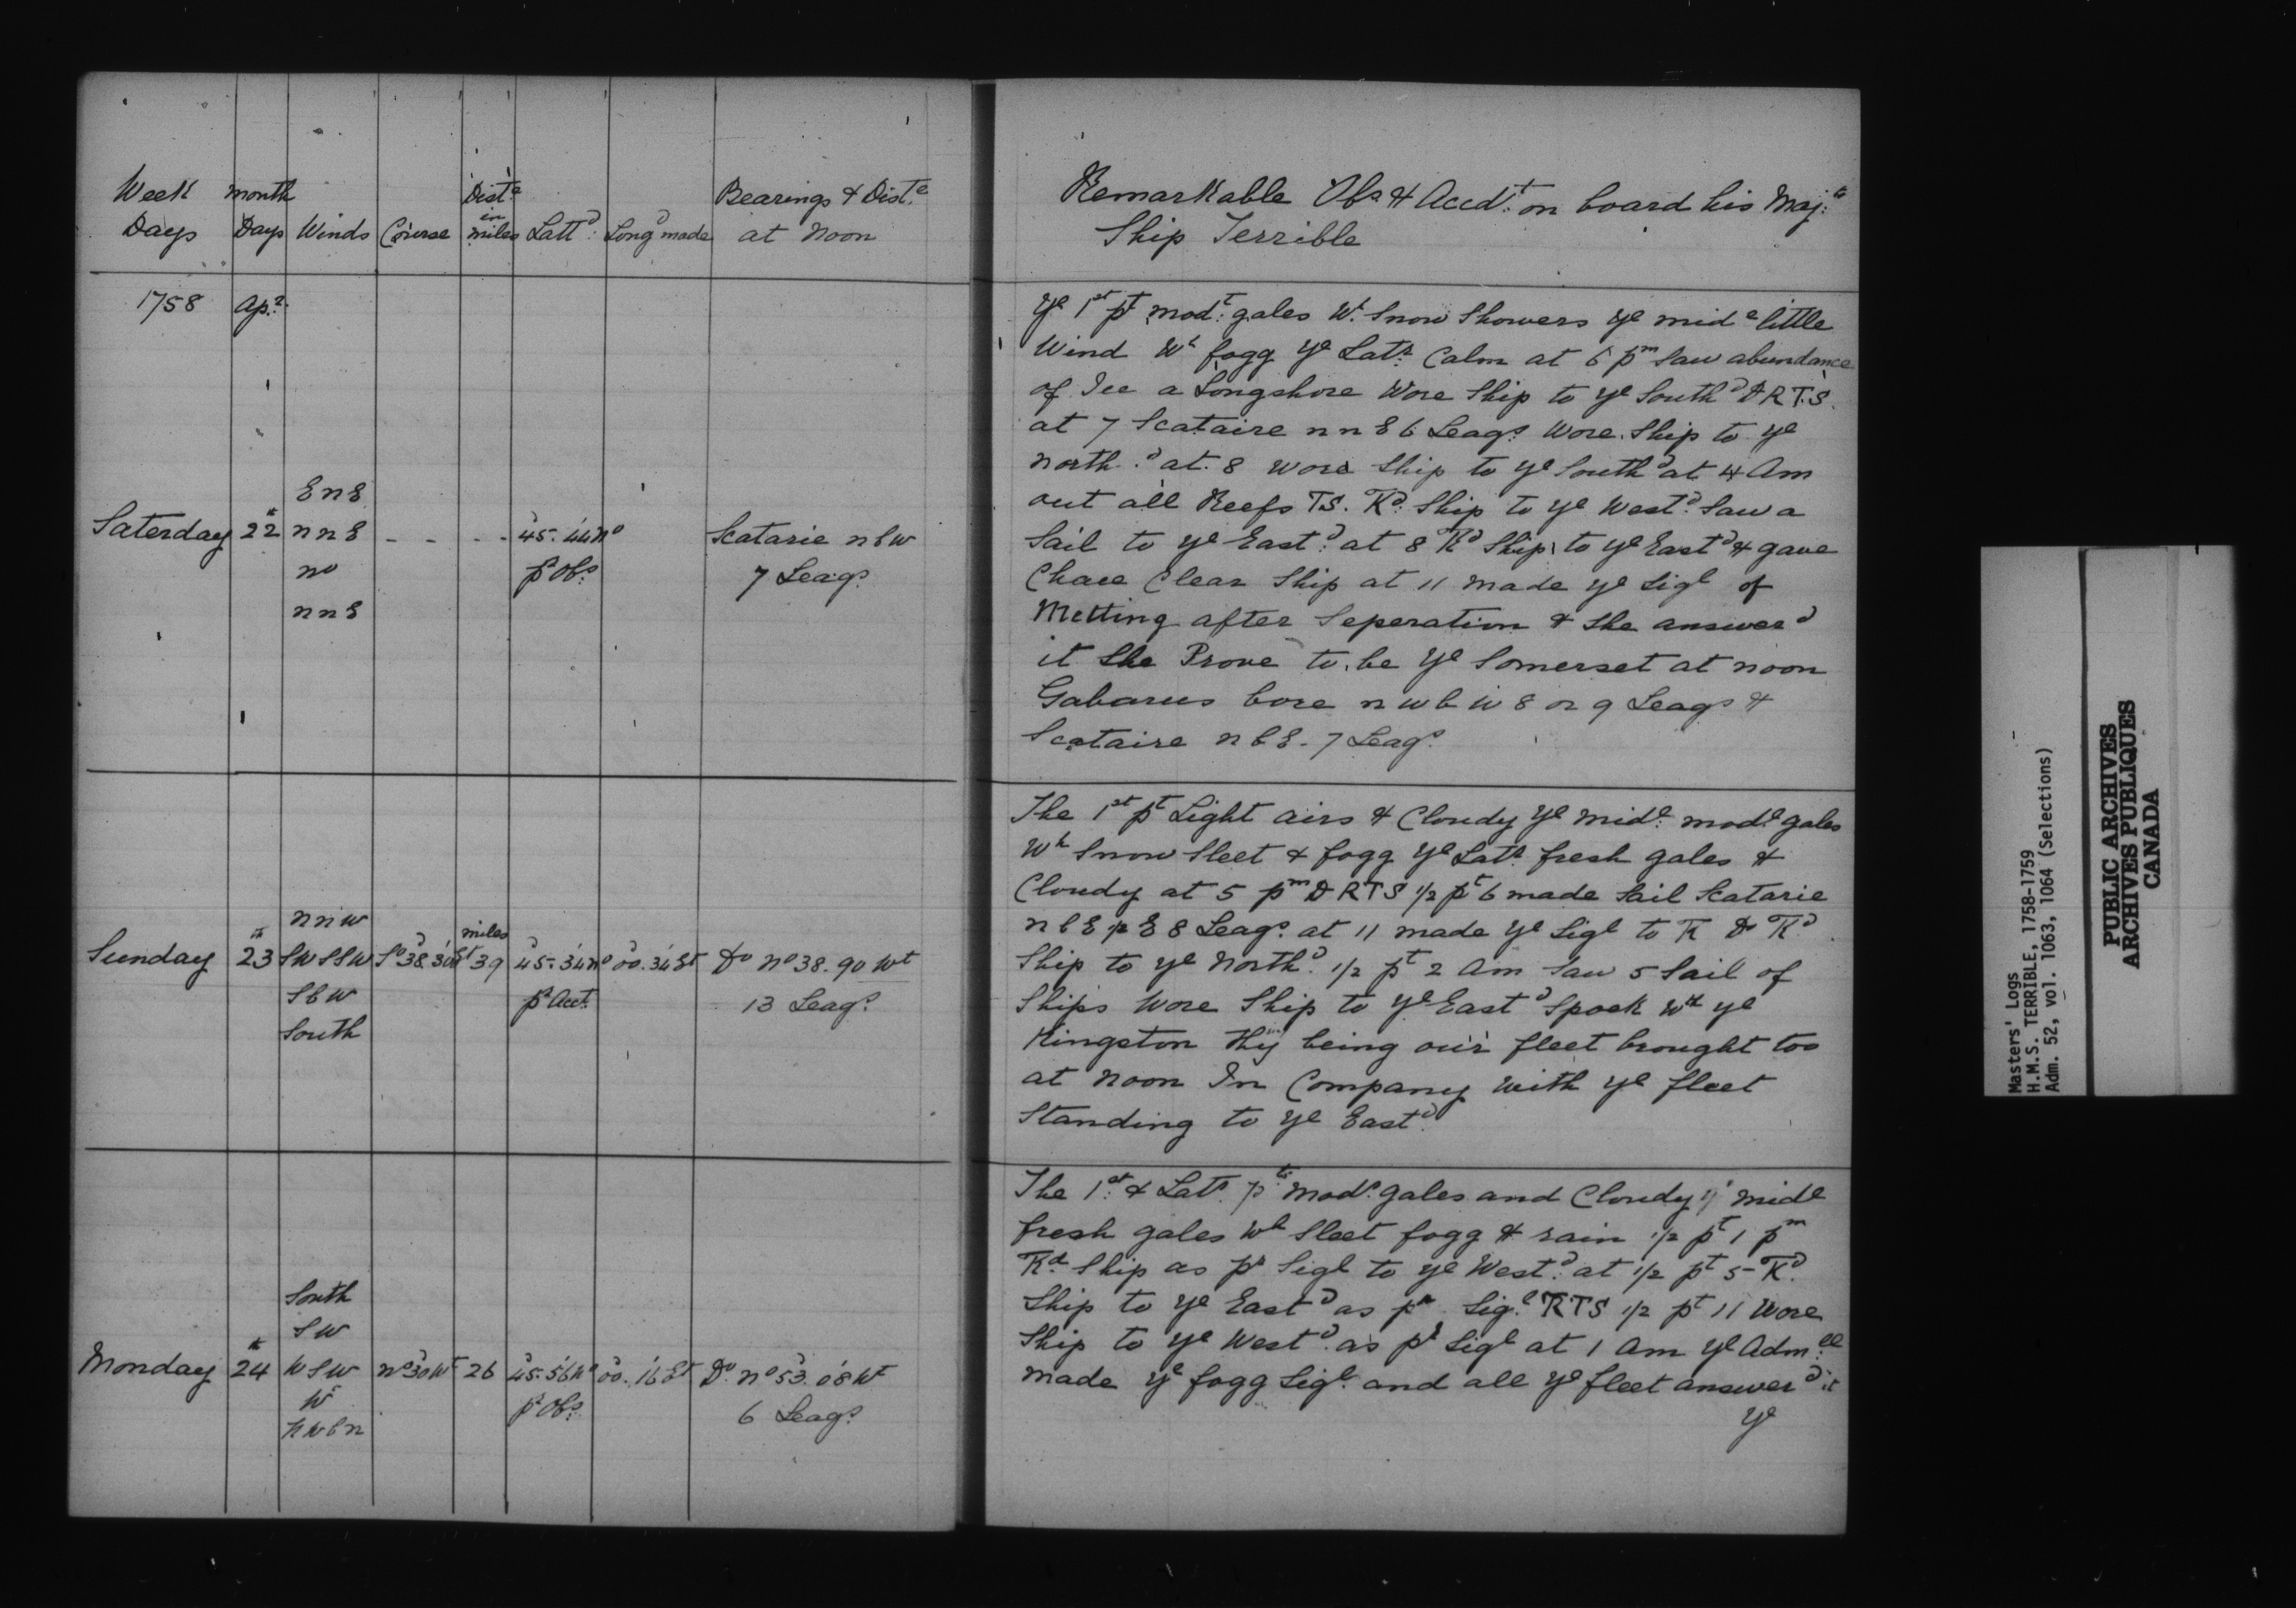 Week Days
month Days
Winds
Course
Dist.e in miles
Latt.d
Long.d made
Bearings & Dist.e at Noon
1758 Ap.l
Saterday 22 - - - - 45.44 No Scatarie n b W
E n E
n n E
no
n n E
p.r Obs.
7 Leags.
Sunday 23th So 38.30 Et miles 39 45.34 no 00.34 Et Do no 38.90 Wt
n n W
SW SSW
S b W
South
pr Acct.
13 Leags.
Monday 24th no 30 Wt 26 45.56 No 00.16 Et Do. no 53.08 Wt
South
SW
WSW
Wt
NWbn
pr Obs.
6 Leags.
Remarkable Obs & Accdt. on board his Maj.ts
Ship Terrible
Ye 1st pt modt. gales Wt. Snow Showers ye mide little
Wind Wh fogg Ye Latr. Calm at 6 pm Saw abundance
of Ice a Longshore Wore Ship to ye Southd D R T.S.
at 7 Scataire n n E 6 Leags. Wore Ship to ye
north.d at 8 wore Ship to ye Southd at 4 Am
out all Reefs TS. Kd. Ship to ye Westd. Saw a
Sail to ye Eastd. at 8 Kd Ship to ye Eastd & gave
Chace Clear Ship at 11 made ye Sigl of
Metting after Seperation & She answerd
it She Prove to be ye Somerset at noon
Gabarus bore n w b w 8 or 9 Leags &
Scataire n b E. 7 Leags.
The 1st pt Light airs & Cloudy ye midl. modt. gales
Wh Snow Sleet & fogg ye Latr. fresh gales &
Cloudy at 5 pm D R T S 1/2 pt 6 made Sail Scatarie
n b E 1/2 E 8 Leags. at 11 made ye Sigl to K Do Kd.
Ship to ye Northd. 1/2 pt 2 Am Saw 5 Sail of
Ships Wore Ship to ye Eastd Spoek Wt ye
Kingston they being our fleet brought too
at Noon In Company with ye fleet
Standing to ye Eastd.
The 1st. & Latr. pts modt. gales and Cloudy ye midl
fresh gales wh Sleet fogg & rain 1/2 pt 1 pm
Kd Ship as pr Sigl to ye Westd. at 1/2 pt 5 Kd.
Ship to ye Eastd as pr Sigl. R T S 1/2 pt 11 Wore
Ship to ye Westd. as pr Sigl at 1 Am ye Adm.ll
made ye fogg Sigl. and all ye fleet answerd it
ye
Masters' Logs
H.M.S. TERRIBLE, 1758-1759
Adm. 52, vol. 1063, 1064 (Selections)
PUBLIC ARCHIVES
ARCHIVES PUBLIQUES
CANADA